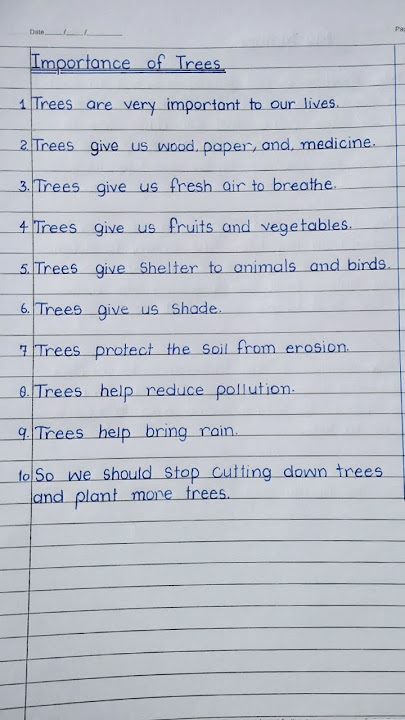 Date___/___/______ Pa
Importance of Trees
1 Trees are very important to our lives.
2. Trees give us wood, paper, and, medicine.
3. Trees give us fresh air to breathe.
4 Trees give us fruits and vegetables.
5. Trees give shelter to animals and birds.
6. Trees give us shade.
7 Trees protect the soil from erosion.
8. Trees help reduce pollution.
9. Trees help bring rain.
10 So we should stop cutting down trees
and plant more trees.